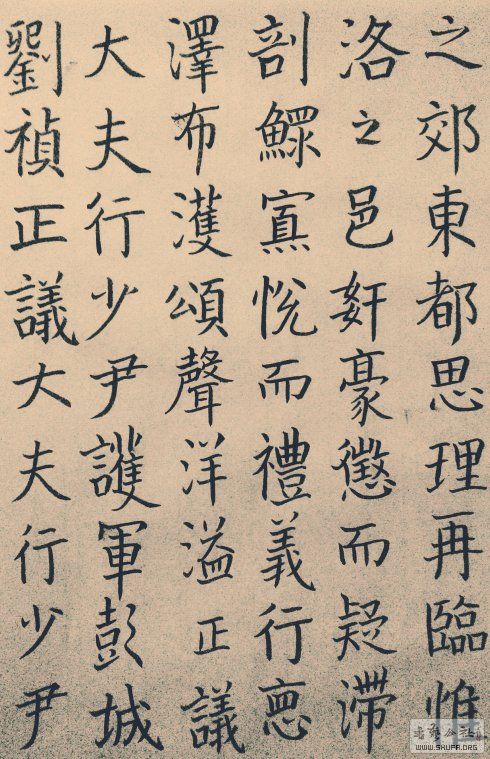 之郊東都思理再臨惟
洛之邑奸豪懲而疑滯
剖鰥寡悅而禮義行恵
澤布濩頌聲洋溢正議
大夫行少尹護軍彭城
劉禎正議大夫行少尹
WWW.SHUFA.ORG